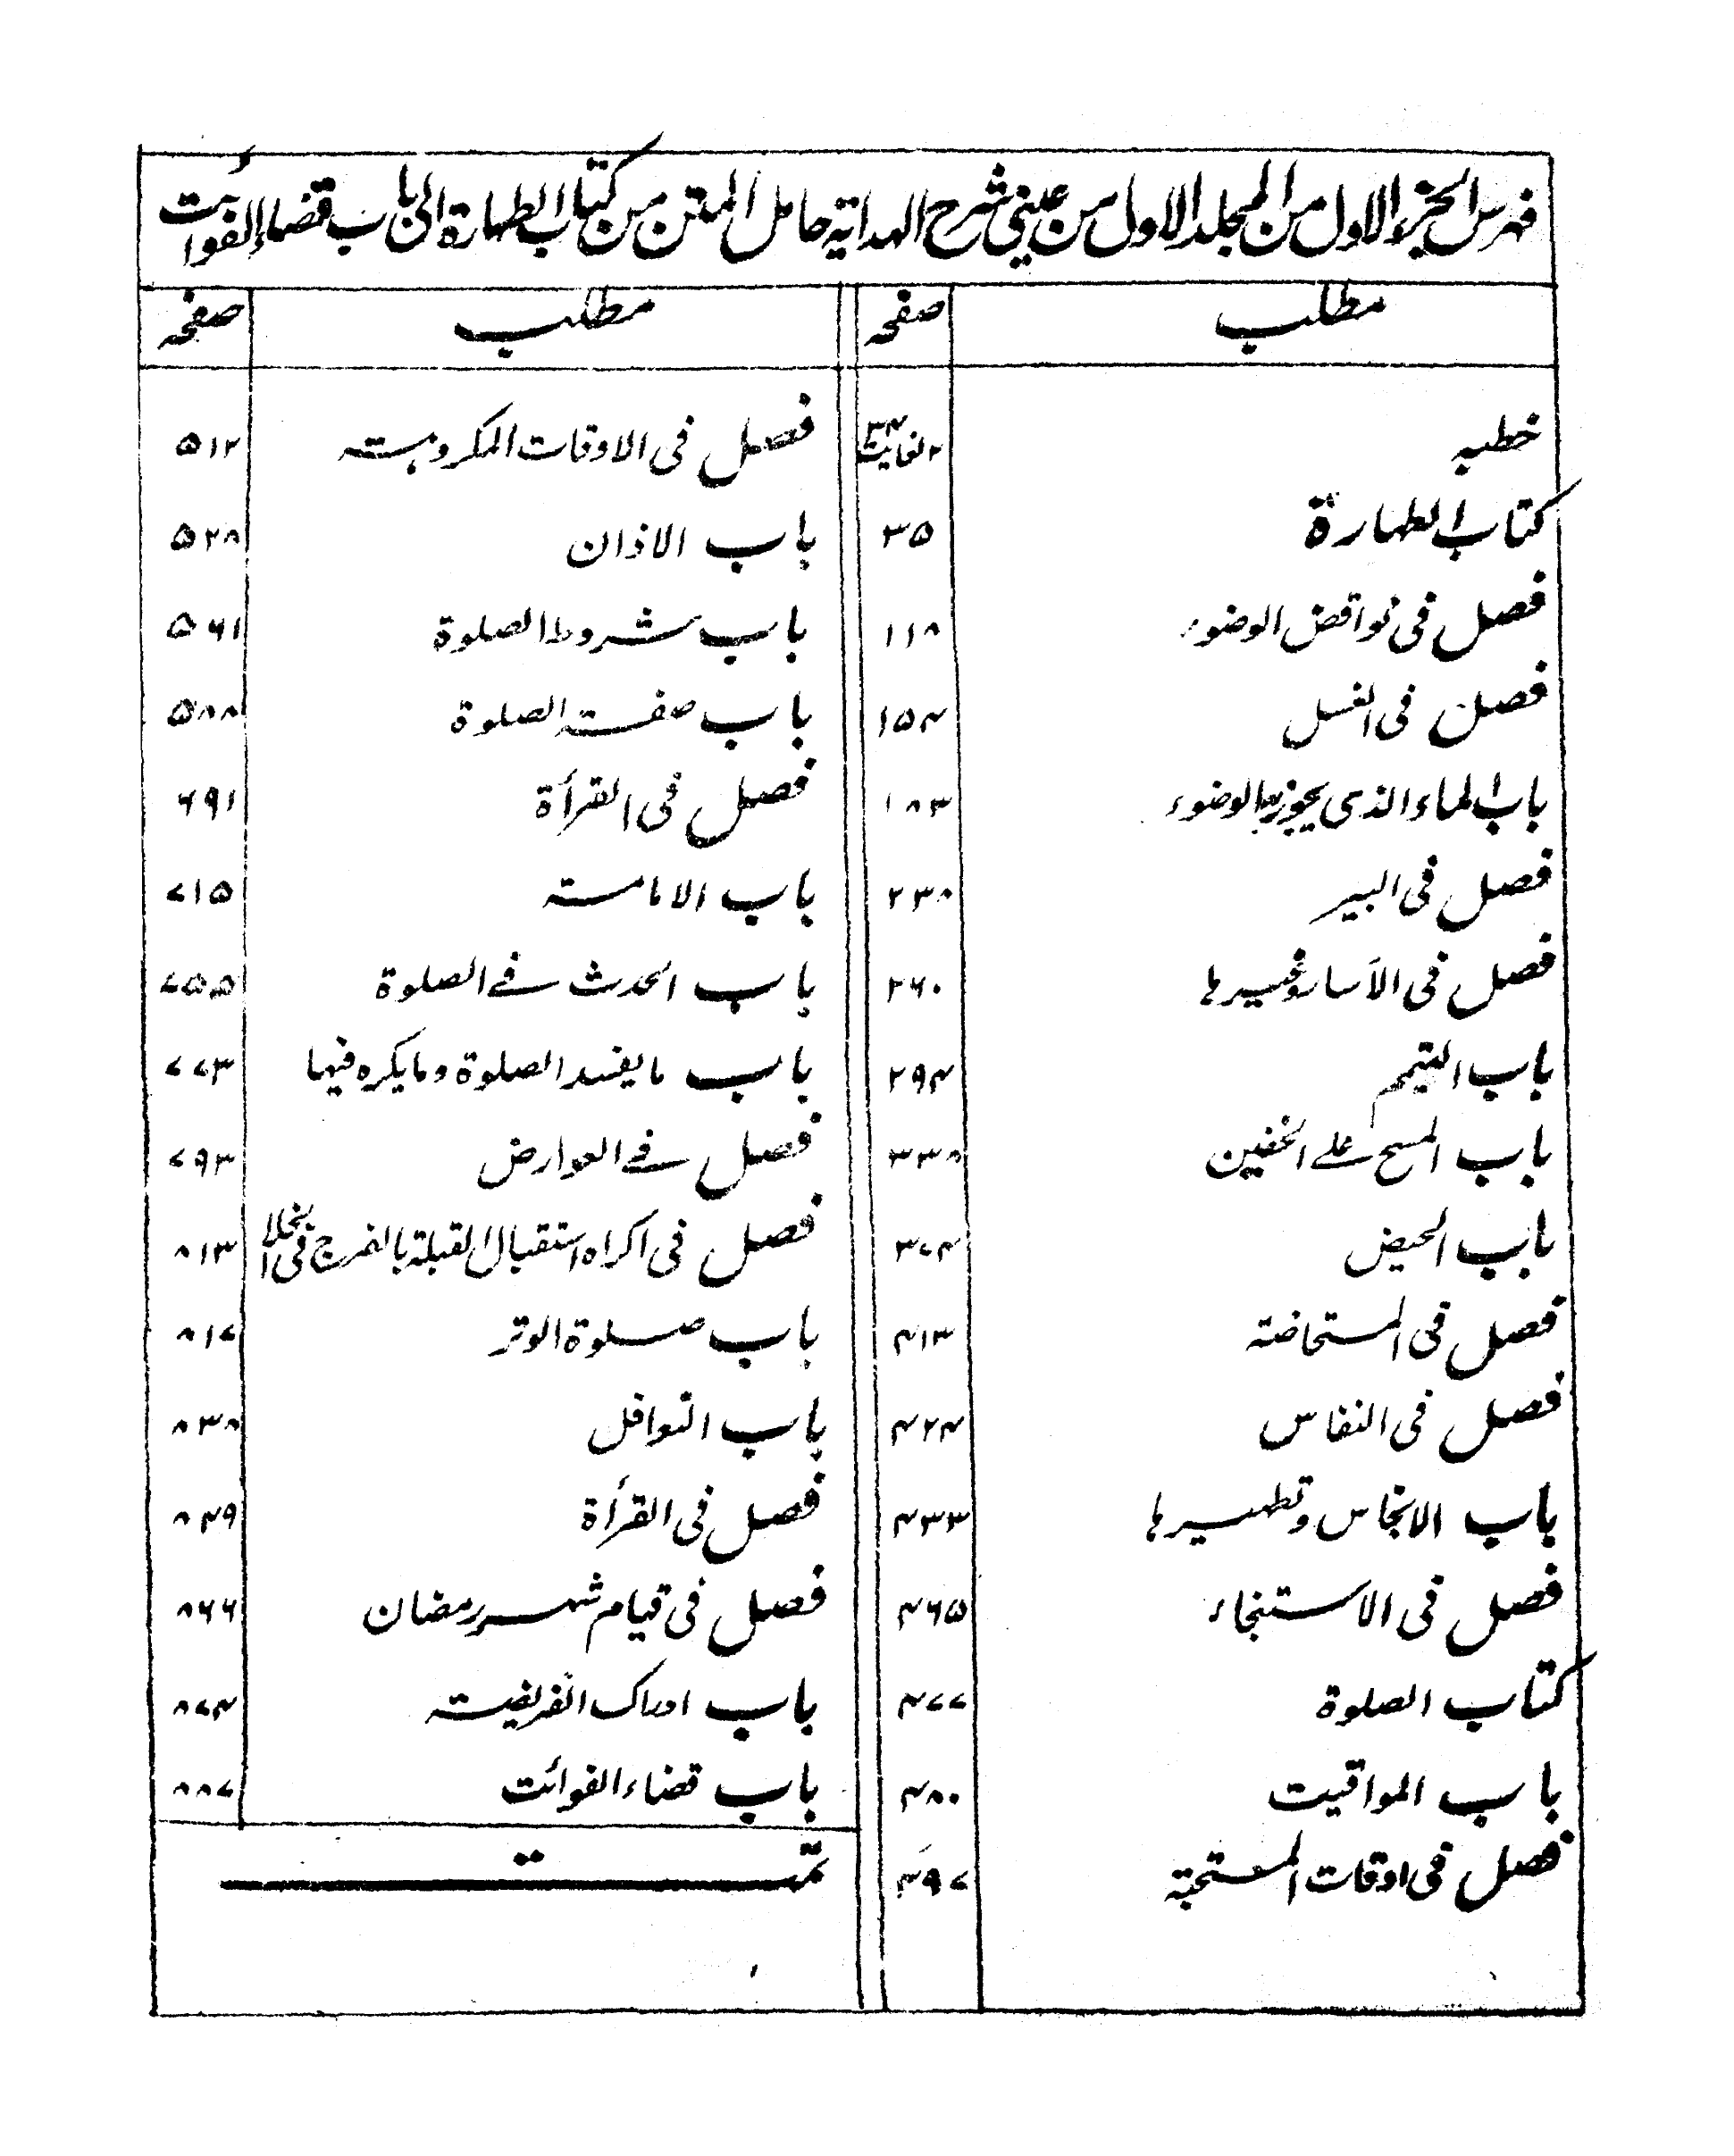 فهرس الجزء الاول من المجلد الاول من عيني شرح الهداية حامل المتن من كتاب الطهارة الى باب قضاء الفوائت
مطلب صفحہ
خطبہ ۲ لغایت ۳۴
كتاب الطهارة ۳۵
فصل فى نواقض الوضوء ۱۱۸
فصل فى الغسل ۱۵۴
باب الماء الذى يجوز به الوضوء ۱۸۳
فصل فى البير ۲۳۸
فصل فى الآسار وغيرها ۲۶۰
باب التيمم ۲۹۴
باب المسح على الخفين ۳۳۸
باب الحيض ۳۷۴
فصل فى المستحاضة ۴۱۳
فصل فى النفاس ۴۲۴
باب الانجاس وتطهيرها ۴۳۳
فصل فى الاستنجاء ۴۶۵
كتاب الصلوة ۴۷۷
باب المواقيت ۴۸۰
فصل فى اوقات المستحبة ۴۹۷
مطلب صفحہ
فصل فى الاوقات المكروهة ۵۱۲
باب الاذان ۵۲۸
باب شروط الصلوة ۵۶۱
باب صفة الصلوة ۵۸۸
فصل فى القرأة ۶۹۱
باب الامامة ۷۱۵
باب الحدث فى الصلوة ۷۵۵
باب ما يفسد الصلوة وما يكره فيها ۷۷۳
فصل فى العوارض ۷۹۳
فصل فى اكراه استقبال القبلة بالفرج فى الخلا ۸۱۳
باب صلوة الوتر ۸۱۷
باب النوافل ۸۳۸
فصل فى القرأة ۸۴۹
فصل فى قيام شهر رمضان ۸۶۶
باب ادراك الفريضة ۸۷۴
باب قضاء الفوائت ۸۸۷
تمت